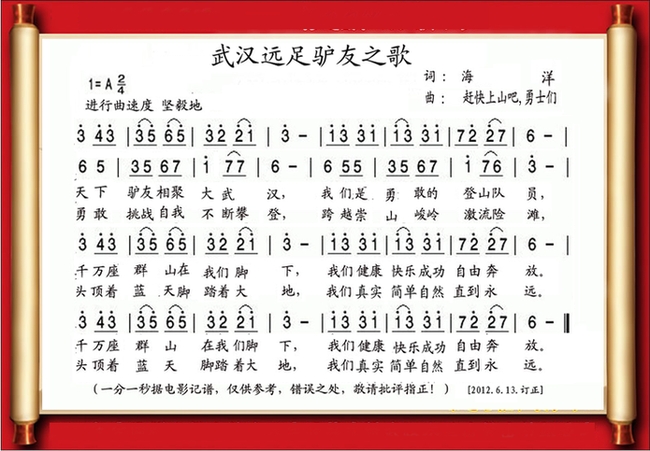 武汉远足驴友之歌
1=A 2/4
词： 海 洋
进行曲速度 坚毅地
曲： 赶快上山吧,勇士们
3 43 | 35 65 | 32 21 | 3 - | 13 31 | 13 31 | 72 27 | 6 - |
6 5 | 35 67 | 1 77 | 6 - | 6 55 | 35 35 | 1 76 | 3 - |
天下 驴友相聚 大武汉， 我们是勇敢的登山队员，
勇敢 挑战自我 不断攀登， 跨越崇山峻岭 激流险滩，
3 43 | 35 65 | 32 21 | 3 - | 13 31 | 13 31 | 72 27 | 6 - |
千万座 群山在我们脚下， 我们健康 快乐成功 自由奔放。
头顶着 蓝天脚踏着大地， 我们真实 简单自然 直到永远。
3 43 | 35 65 | 32 21 | 3 - | 13 31 | 13 31 | 72 27 | 6 - ‖
千万座 群山 在我们脚下， 我们健康 快乐成功 自由奔放。
头顶着 蓝天 脚踏着大地， 我们真实 简单自然 直到永远。
（一分一秒据电影记谱，仅供参考，错误之处，敬请批评指正！） [2012.6.13.订正]